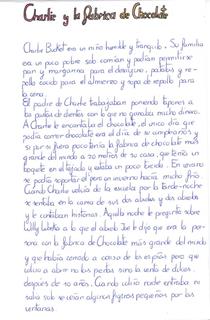 Charlie y la Fabrica de Chocolate
Charlie Bucket era un niño humilde y tranquilo. Su familia
era un poco pobre solo comian y podian permitirse
pan y margarina para el desayuno, patatas y re-
pollo cocido para el almuerzo y sopa de repollo para
la cena.
El padre de Charlie trabajaba poniendo tapones a
las pastas de dientes con lo que no ganaba mucho dinero.
A Charlie le encantaba el chocolate, el unico dia que
podia comer chocolate era el dia de su cumpleaños, y
si por si fuera poco tenia la fabrica de chocolate más
grande del mundo a 20 metros de su casa, que tenia un
boquete en el tejado y estaba un poco torcida. En verano
se podia soportar el pero en invierno hacia mucho frio.
Cuando Charlie volvia de la escuela por la tarde-noche
se sentaba en la cama de sus dos abuelas y dos abuelos
y le contaban historias. Aquella noche le pregunto sobre
Willy Wonka a lo que el abuelo Joe le dijo que era la per-
sona con la fabrica de Chocolate más grande del mundo
y que habia cerrado a causa de los espias pero que
volvio a abrir no las puertas sino la venta de dulces
despues de 10 años. Cuando volvio nadie entraba, ni
salia solo se veian algunas figuras pequeñas por las
ventanas.